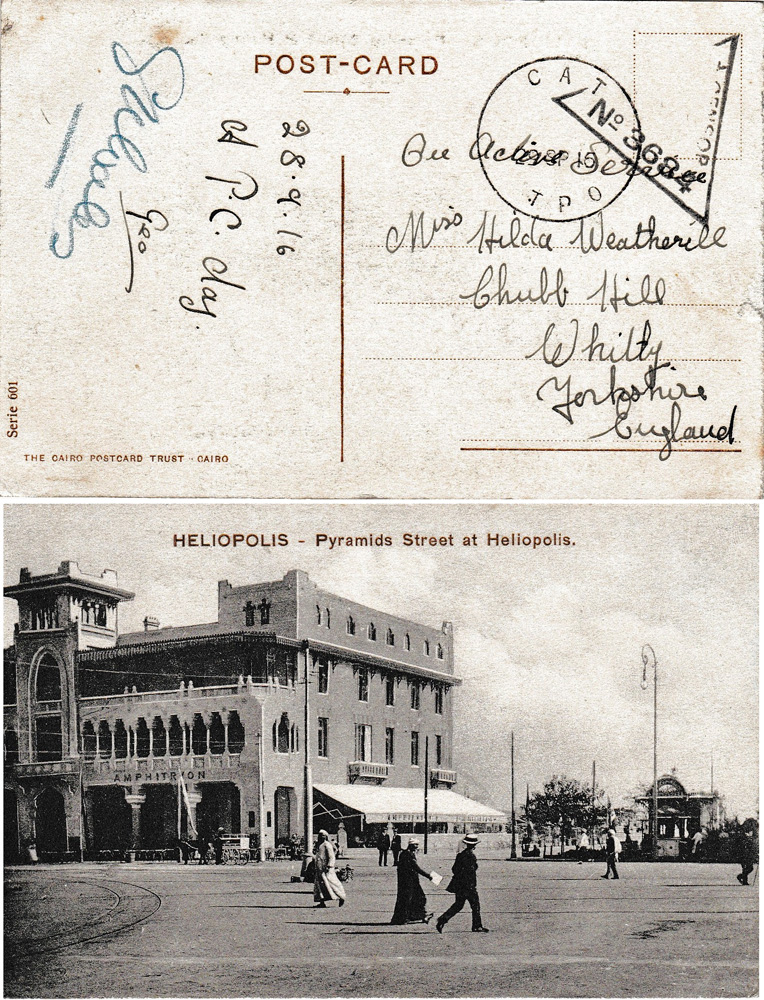 POST-CARD
CAT
TPO
Nº 3684
CENSOR
On Active Service
Miss Hilda Weatherill
Chubb Hill
Whitby
Yorkshire
England
28.9.16
A P.C. day.
Geo
Serie 601
THE CAIRO POSTCARD TRUST - CAIRO
HELIOPOLIS - Pyramids Street at Heliopolis.
AMPHITRYON